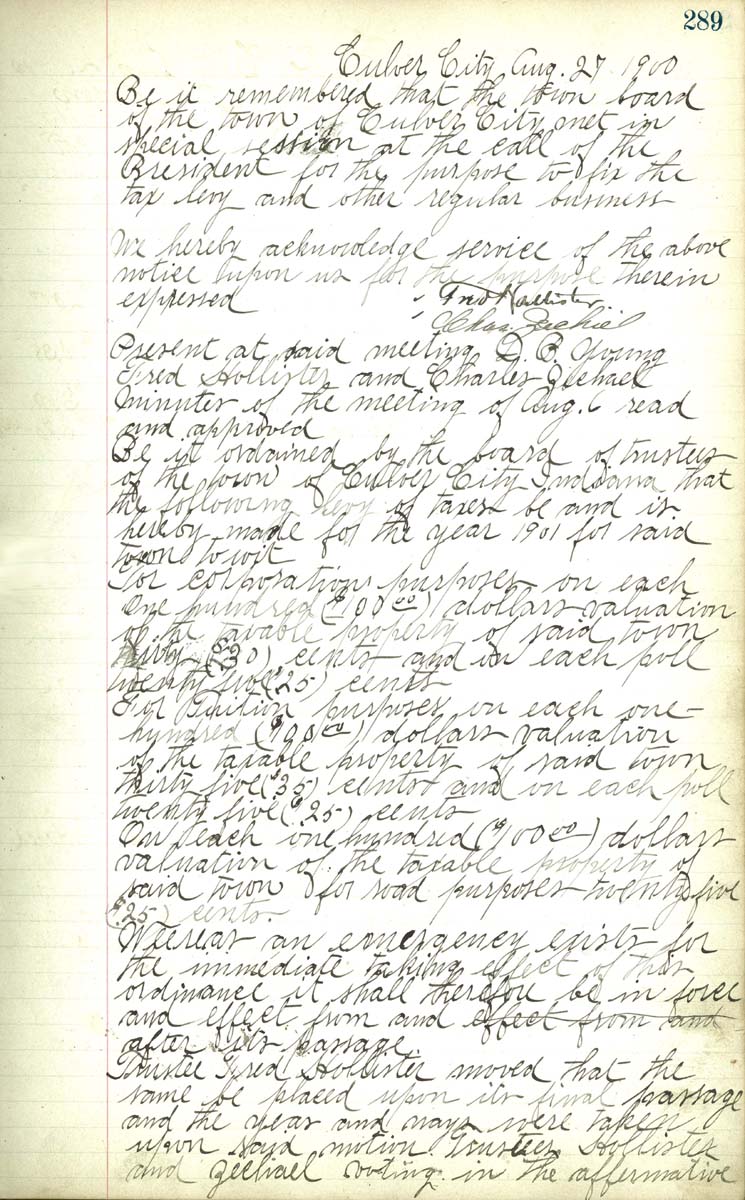 289
Culver City Aug. 27 1900
Be it remembered that the town board
of the town of Culver City met in
special session at the call of the
President for the purpose to fix the
tax levy and other regular business
We hereby acknowledge service of the above
notice upon us for the purpose therein
expressed Fred Hollister
Chas Zechiel
Present at said meeting D. B. Young
Fred Hollister and Charles Zechael
Minutes of the meeting of Aug. 6 read
and approved
Be it ordained by the board of trustees
of the town of Culver City Indiana that
the following levy of taxes be and is
hereby made for the year 1901 for said
town to wit
For corporation purposes on each
One hundred ($100 00) dollars valuation
of the taxable property of said town
cents and on each poll
twenty five ($.25) cents
For Tuition purposes on each one-
hundred ($100 00) dollars valuation
of the taxable property of said town
thirty five ($.35) cents and on each poll
twenty five ($.25) cents
On each one hundred ($100 00) dollars
valuation of the taxable property of
said town for road purposes twenty five
($.25) cents.
Whereas an emergency exists for
the immediate taking effect of this
ordinance it shall therefore be in force
and effect from and effect from and
after its passage
Trustee Fred Hollister moved that the
same be placed upon its final passage
and the yeas and nays were taken
upon said motion. Trustees Hollister
and Zechiael voting in the affirmative